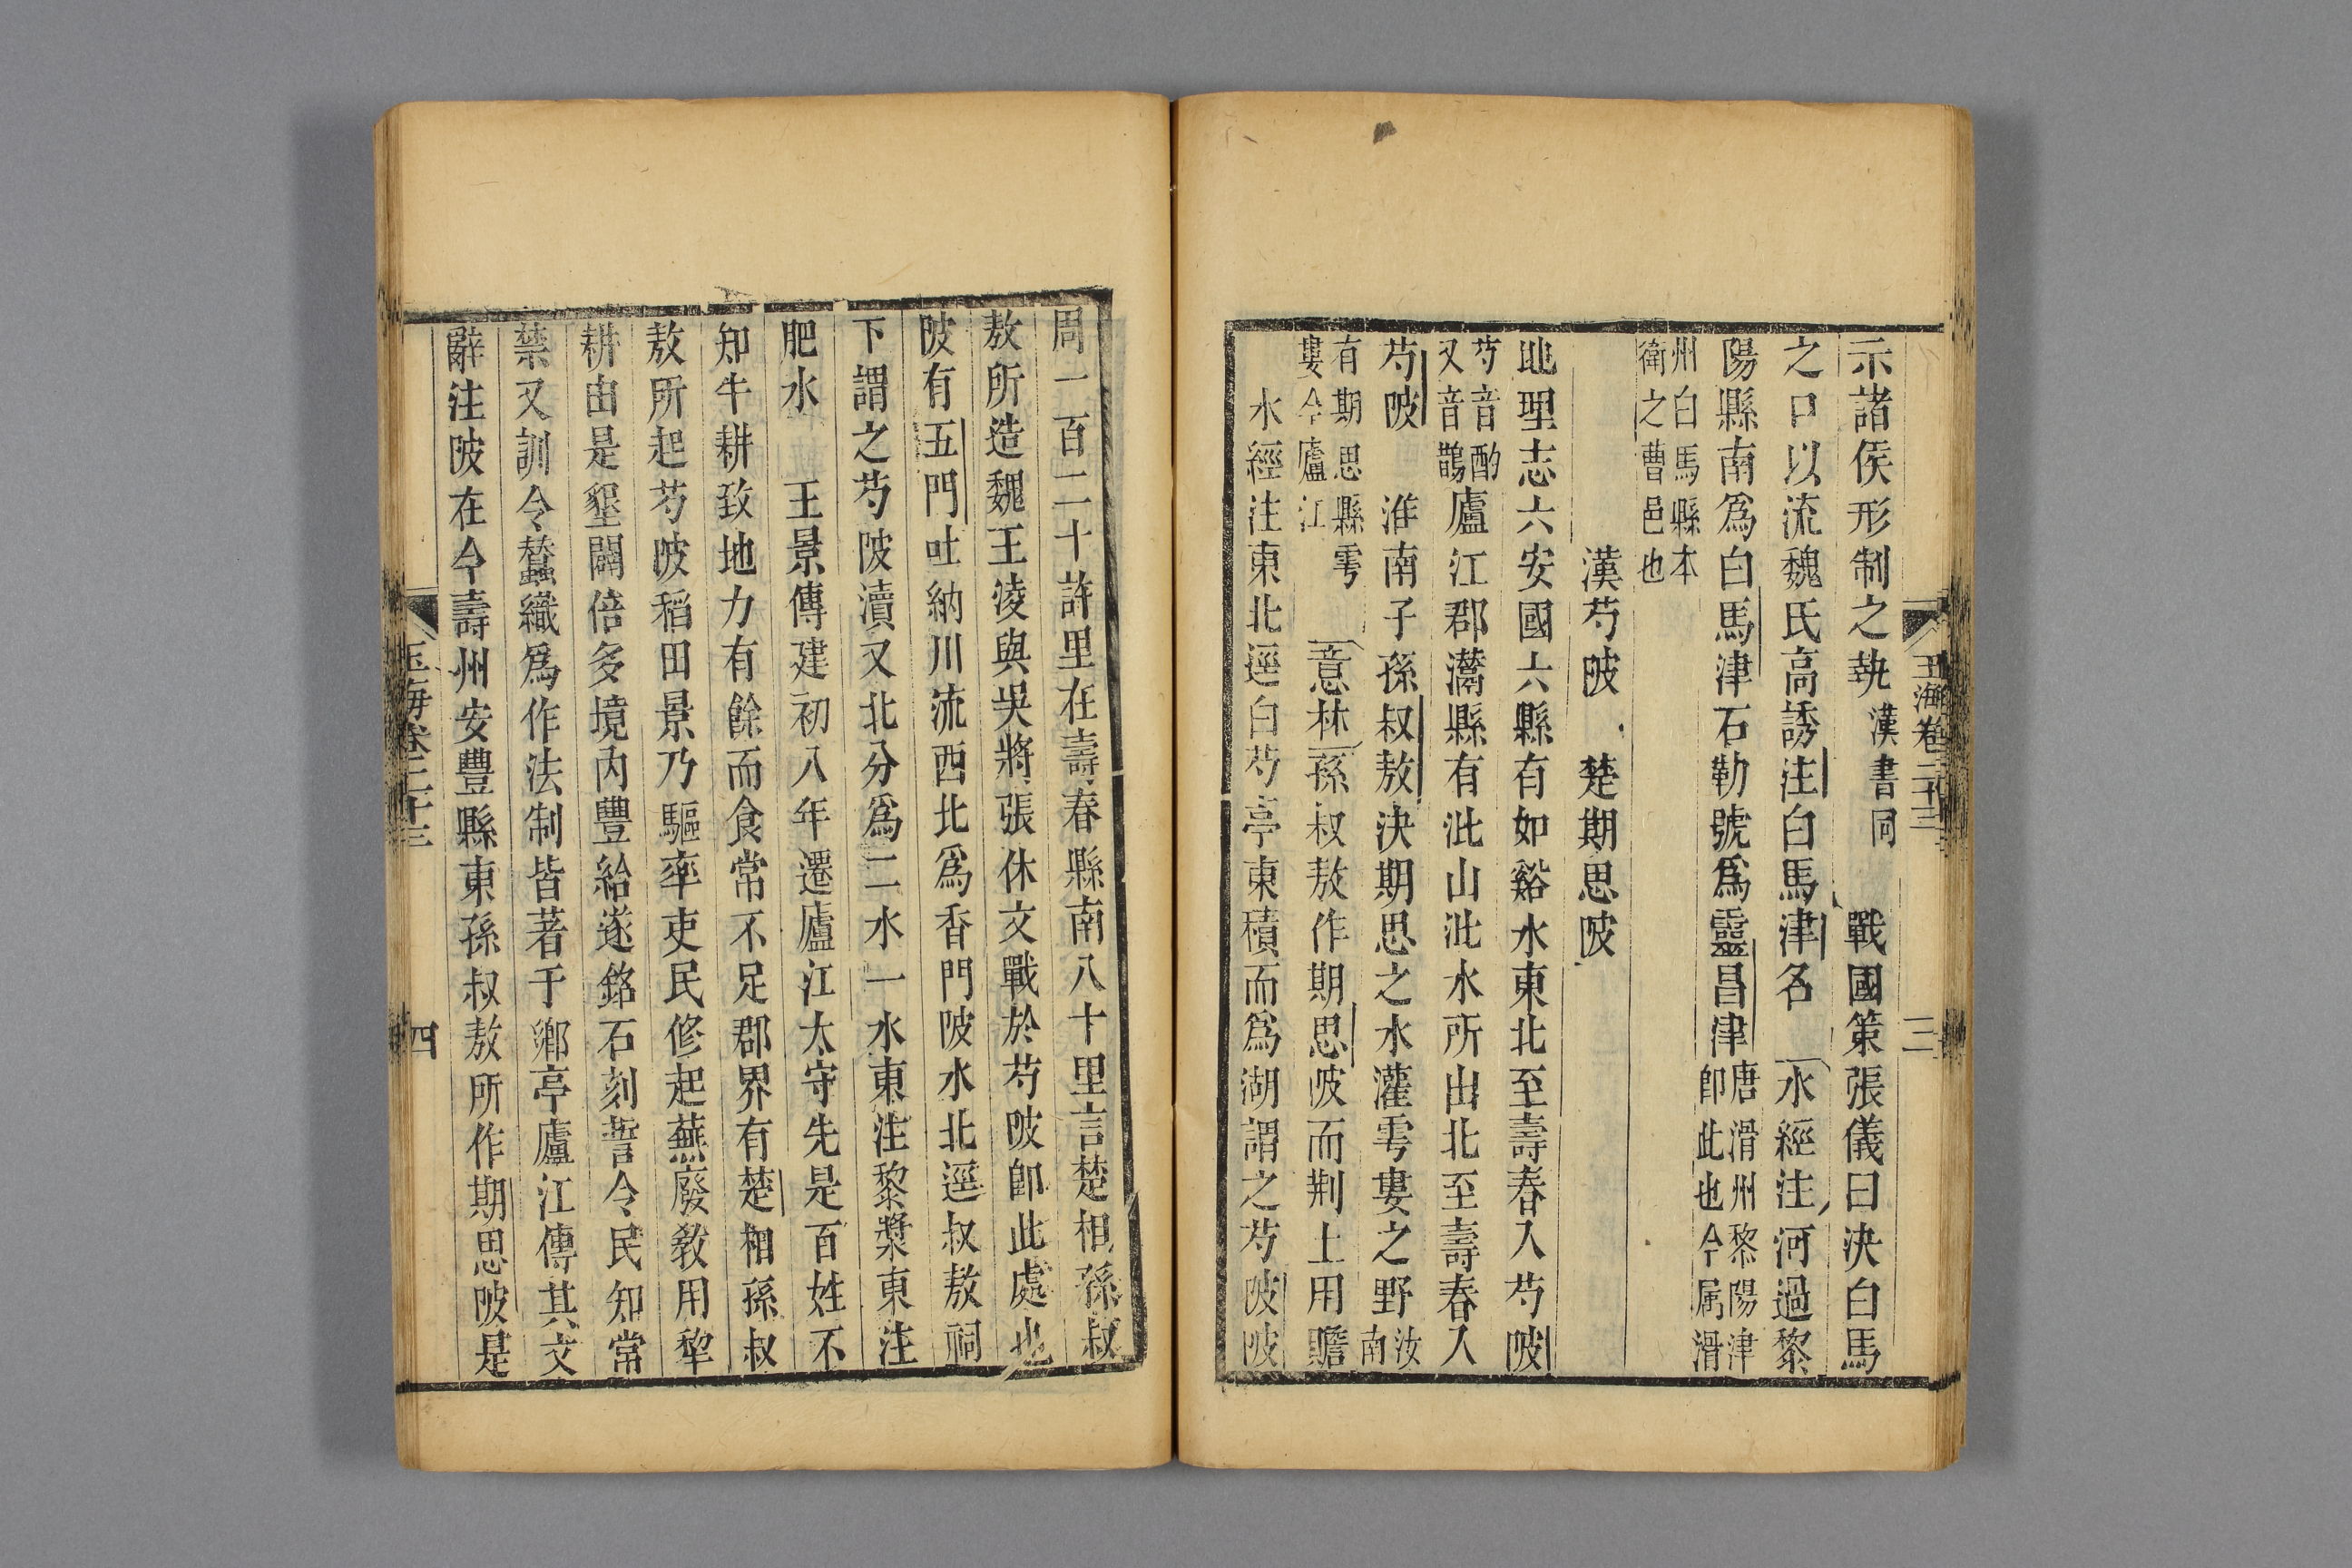 玉海卷二十三
三
示諸侯形制之埶漢書同 戰國策張儀曰決白馬
之口以流魏氏高誘注白馬津名 水經注河過黎
陽縣南爲白馬津石勒號爲靈昌津唐滑州黎陽津卽此也今属滑
州白馬縣本衛之曹邑也
漢芍陂 楚期思陂
地理志六安國六縣有如谿水東北至壽春入芍陂
芍音酌又音鵲廬江郡灊縣有沘山沘水所出北至壽春入
芍陂 淮南子孫叔敖決期思之水灌雩婁之野汝南
有期思縣雩婁今廬江 意林孫叔敖作期思陂而荆土用贍
水經注東北逕白芍亭東積而爲湖謂之芍陂陂
周一百二十許里在壽春縣南八十里言楚相孫叔
敖所造魏王淩與吳將張休文戰於芍陂卽此處也
陂有五門吐納川流西北爲香門陂水北逕叔敖祠
下謂之芍陂瀆又北分爲二水一水東注黎漿東注
肥水 王景傳建初八年遷廬江太守先是百姓不
知牛耕致地力有餘而食常不足郡界有楚相孫叔
敖所起芍陂稻田景乃驅率吏民修起蕪廢敎用犂
耕由是墾闢倍多境内豐給遂銘石刻誓令民知常
禁又訓令蠶織爲作法制皆著于鄉亭廬江傳其文
辭注陂在今壽州安豐縣東孫叔敖所作期思陂是
玉海卷二十三
四